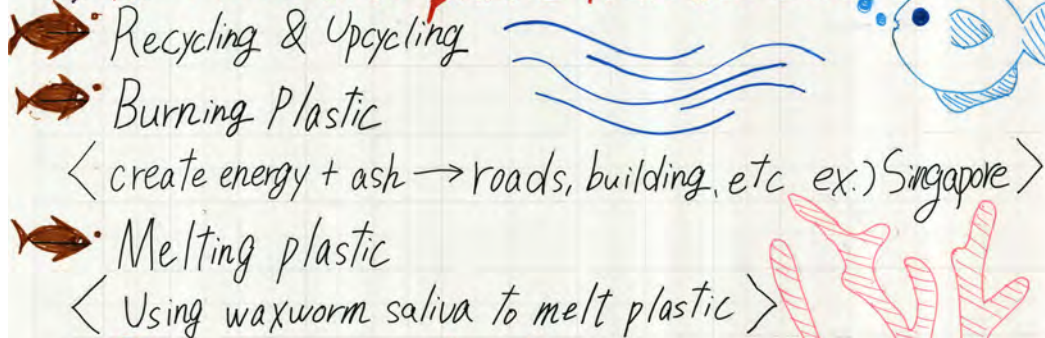 Recycling & Upcycling
Burning Plastic
< create energy + ash → roads, building, etc ex.) Singapore >
Melting plastic
< Using waxworm saliva to melt plastic >